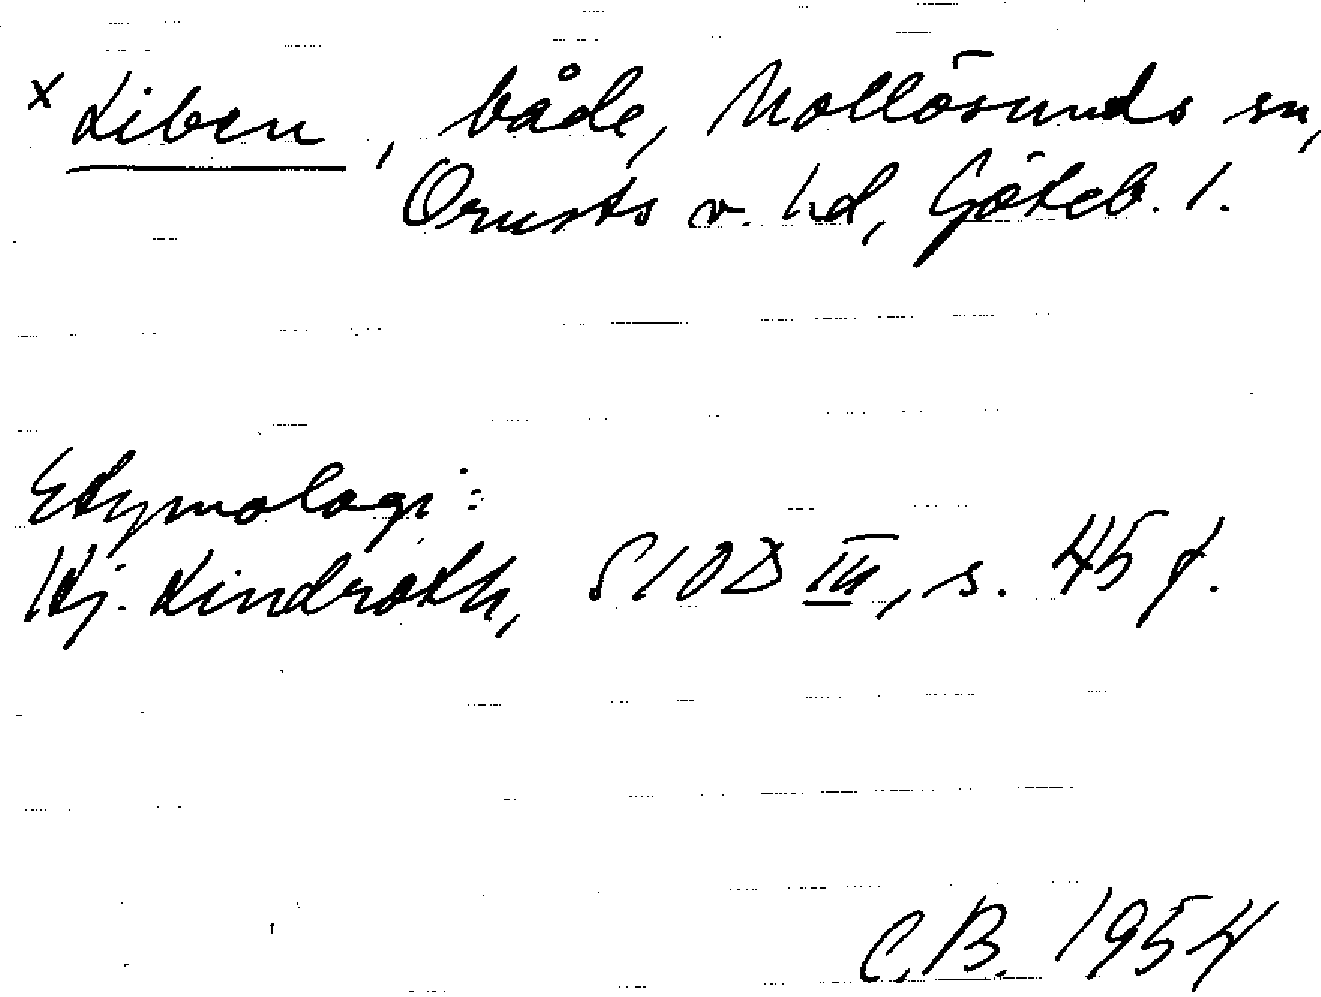 x Liben, både, Mollösunds sn,
Orusts v. hd, Göteb. l.
Etymologi:
Hj. Lindroth, SIOD III, s. 45 f.
C.B. 1954